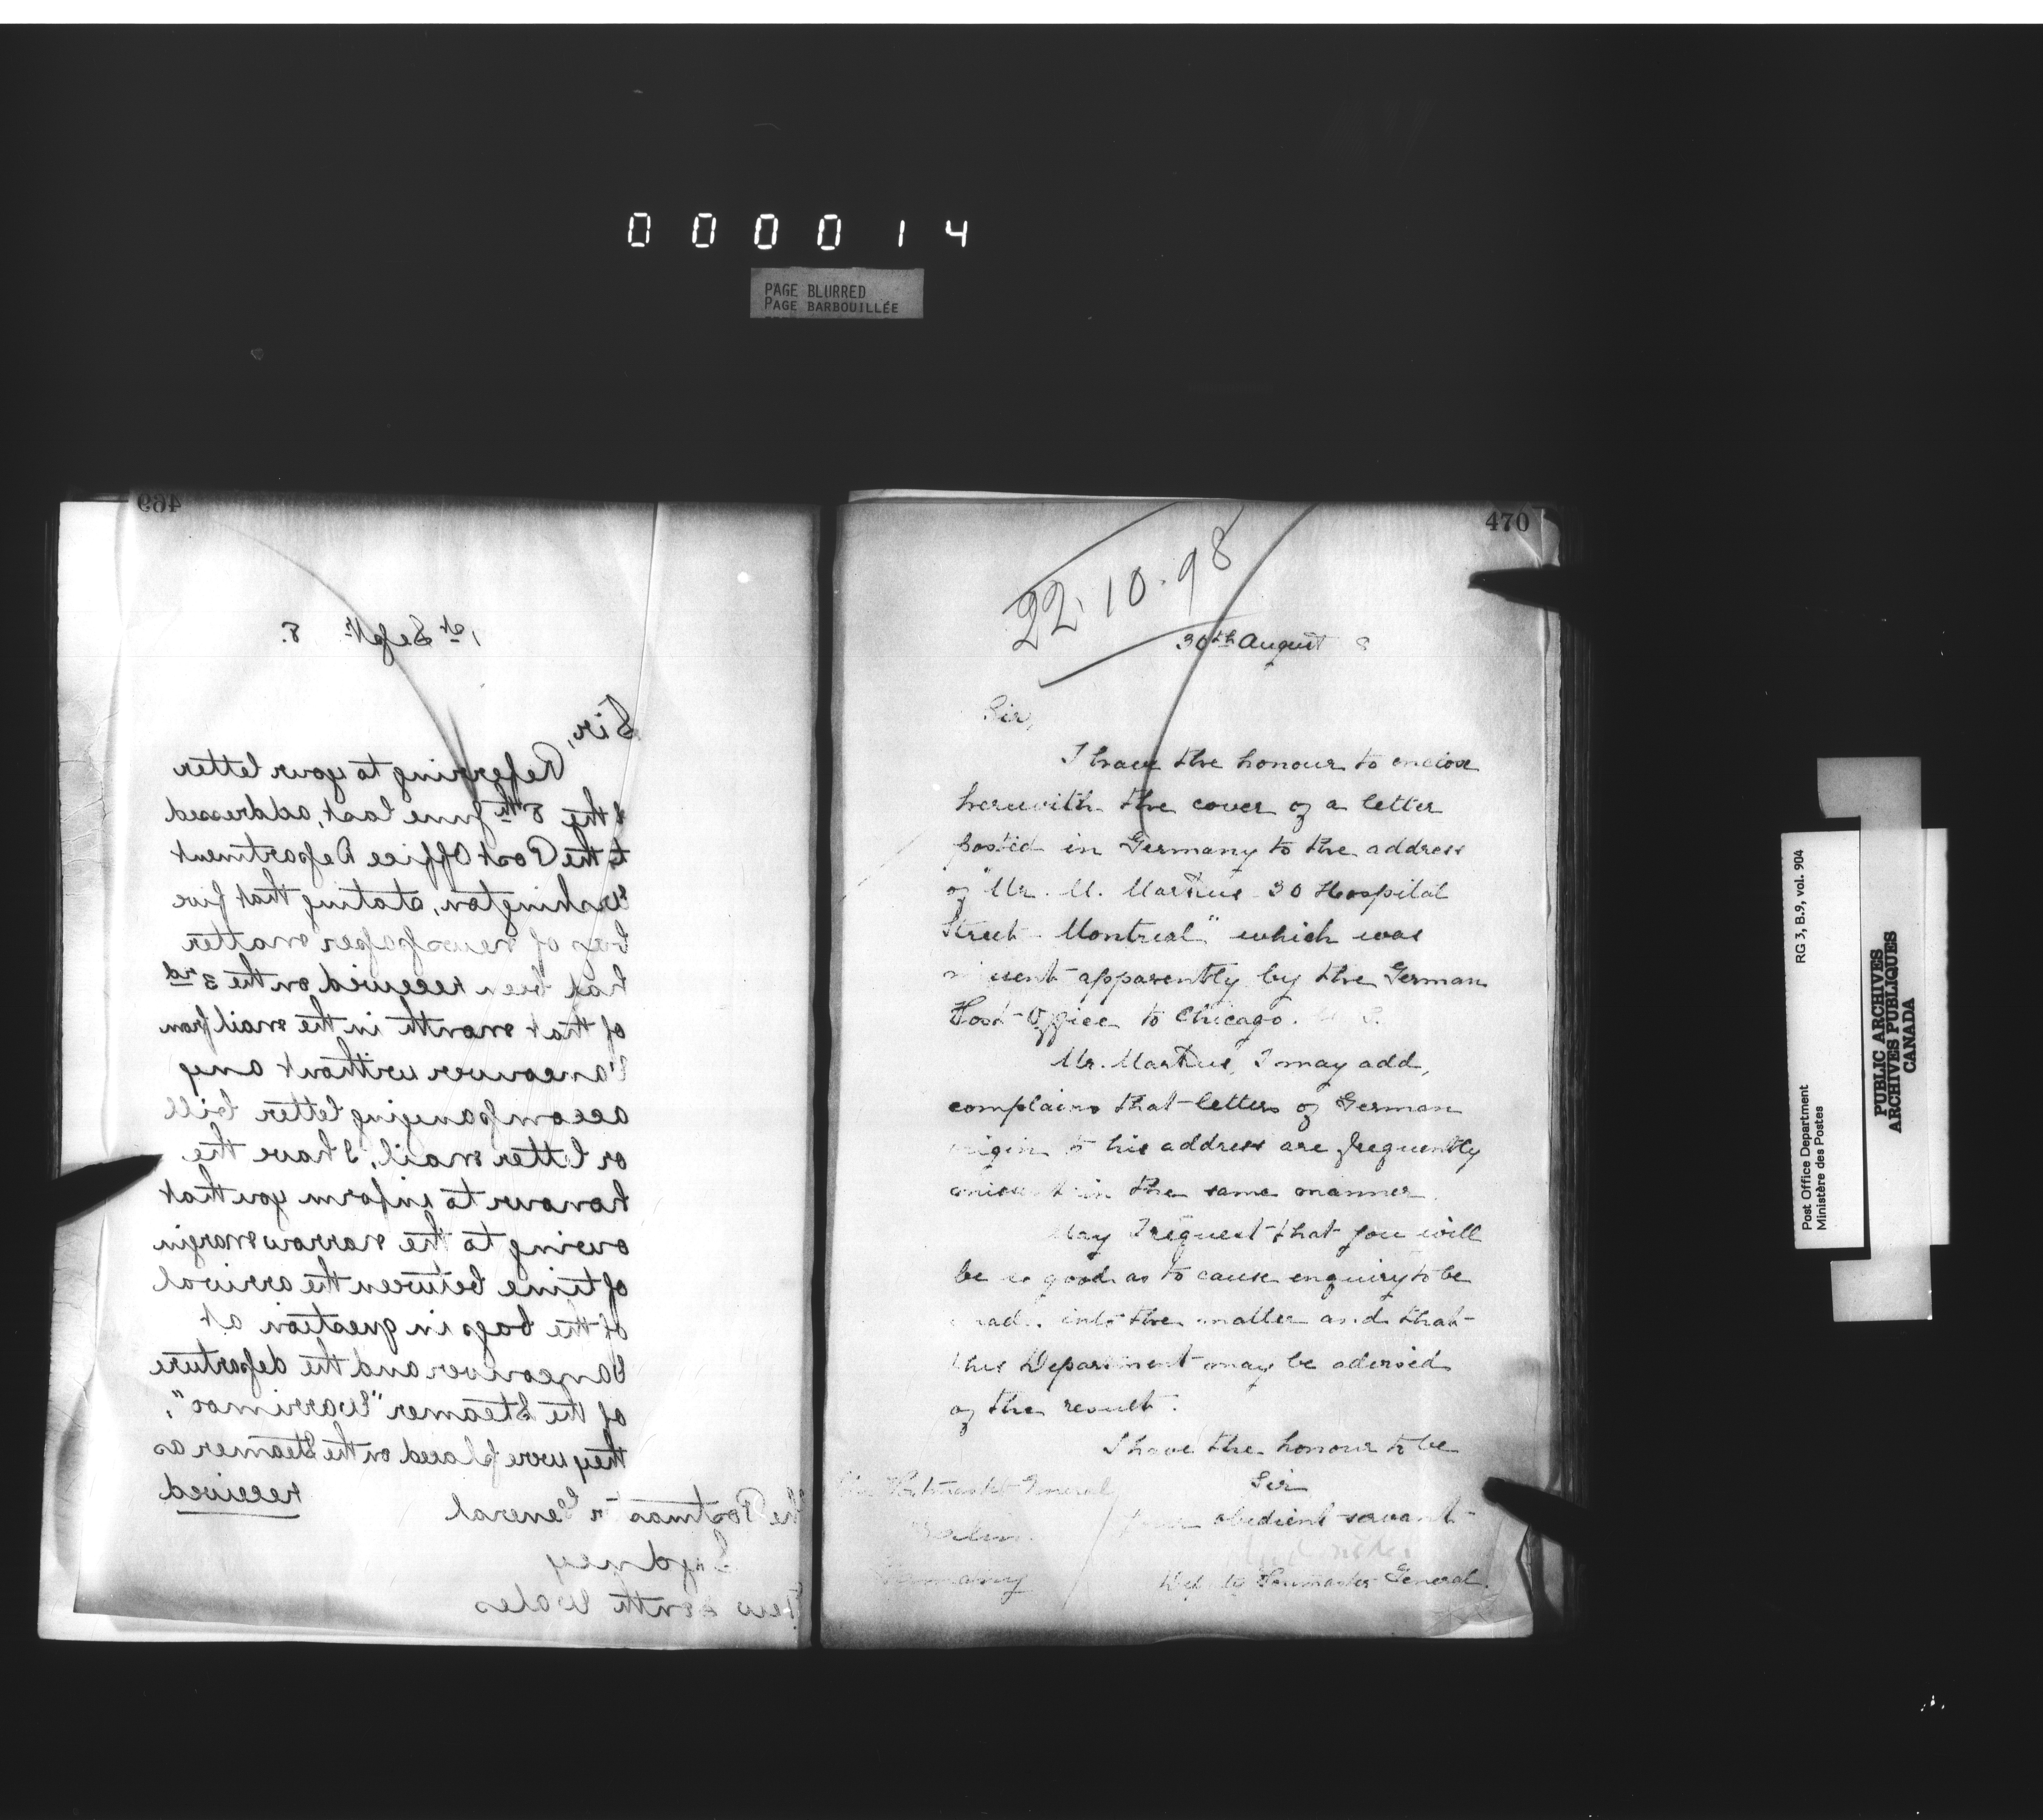 0 0 0 0 1 4
PAGE BLURRED
PAGE BARBOUILLÉE
469
1st Sept. 8.
Sir,
Referring to your letter
of the 8th June last, addressed
to the Post Office Department
Washington, stating that five
bags of newspaper matter
had been received on the 3rd
of that month in the mail from
Vancouver without any
accompanying letter bill
or letter mail, I have the
honour to inform you that
owing to the narrow margin
of time between the arrival
of the bags in question at
Vancouver and the departure
of the Steamer "Warrimoo",
they were placed on the Steamer as
received
The Postmaster General
Sydney
New South Wales
470
22.10.98
30th August 8
Sir,
I have the honour to enclose
herewith the cover of a letter
posted in Germany to the address
of "Mr. M. 30 Hospital
Street Montreal" which was
apparently by the German
Post Office to Chicago.
Mr. I may add,
complains that letters of German
origin to his address are frequently
in the same manner.
May I request that you will
be so good as to cause enquiry to be
made into the matter and that
this Department may be advised
of the result.
I have the honour to be
Sir
Your obedient servant
Deputy Postmaster General.
The Postmaster General
Berlin
Germany
RG 3, B.9, vol. 904
Post Office Department
Ministère des Postes
PUBLIC ARCHIVES
ARCHIVES PUBLIQUES
CANADA